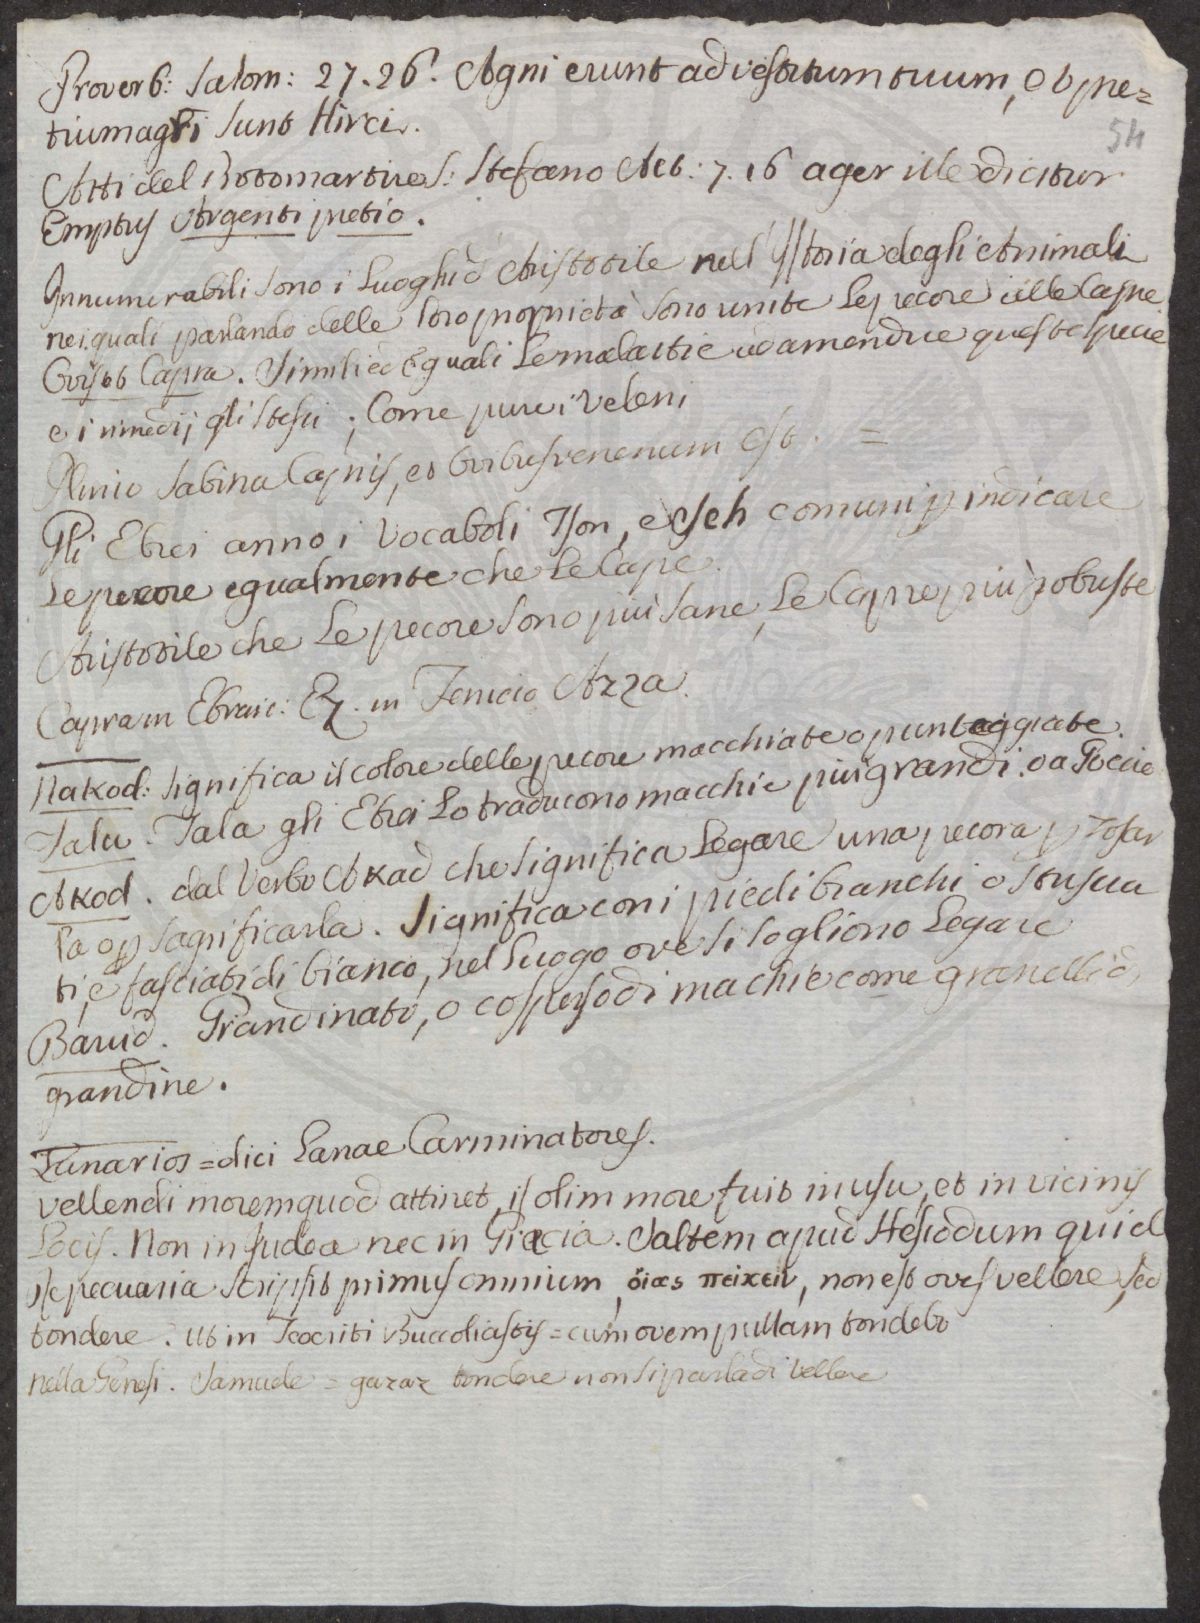 Proverb: Salom: 27.26. Agni erunt ad vestitum tuum, et pre=
tium agri sunt Hirci.
54
Atti del Protomartire S: Stefano Act: 7. 16 ager ille dicitur
Emptus Argenti pretio.
Innumerabili sono i Luoghi d'Aristotile nell'Istoria degli Animali
nei quali parlando delle loro proprietà sono unite Le pecore alle Capre
Ovis et Capra. Simili ed Eguali Le malattie ad amendue queste specie
e i rimedij gli stessi; Come pure i Veleni
Plinio Sabina Capris, et Ovibus venenum est. =
Gli Ebrei anno i Vocaboli Tson, e Seh comuni p indicare
Le pecore egualmente che Le Capre.
Aristotile che Le pecore sono più sane, Le Capre più robuste
Capra in Ebraic: Ez. in Fenicio Azza.
Nakod: significa il colore delle pecore macchiate o punteggiate.
Talu. Tala gli Ebrei Lo traducono macchie più grandi. o a Goccie
Akod. dal Verbo Akad che significa Legare una pecora p Tosar
la o p sagrificarla. Significa con i piedi bianchi o
ti, e fasciati di bianco, nel Luogo ove si sogliono Legare
Barud. Grandinato, o cosperso di machie come granelli di
grandine.
Lanarios = dici Lanae Carminatores.
vellendi morem quod attinet, is olim more fuit in usu, et in vicinis
Locis. Non in Judea nec in Graecia. Saltem apud Hesiodum qui d
Re pecuaria scripsit primus omnium, ὄιας πείκειν, non est oves vellere, sed
tondere. Ut in Teocriti Buccoliastis = cum ovem pullam tondebo
nella Genesi. Samuele = gazaz tondere non si parla di vellere